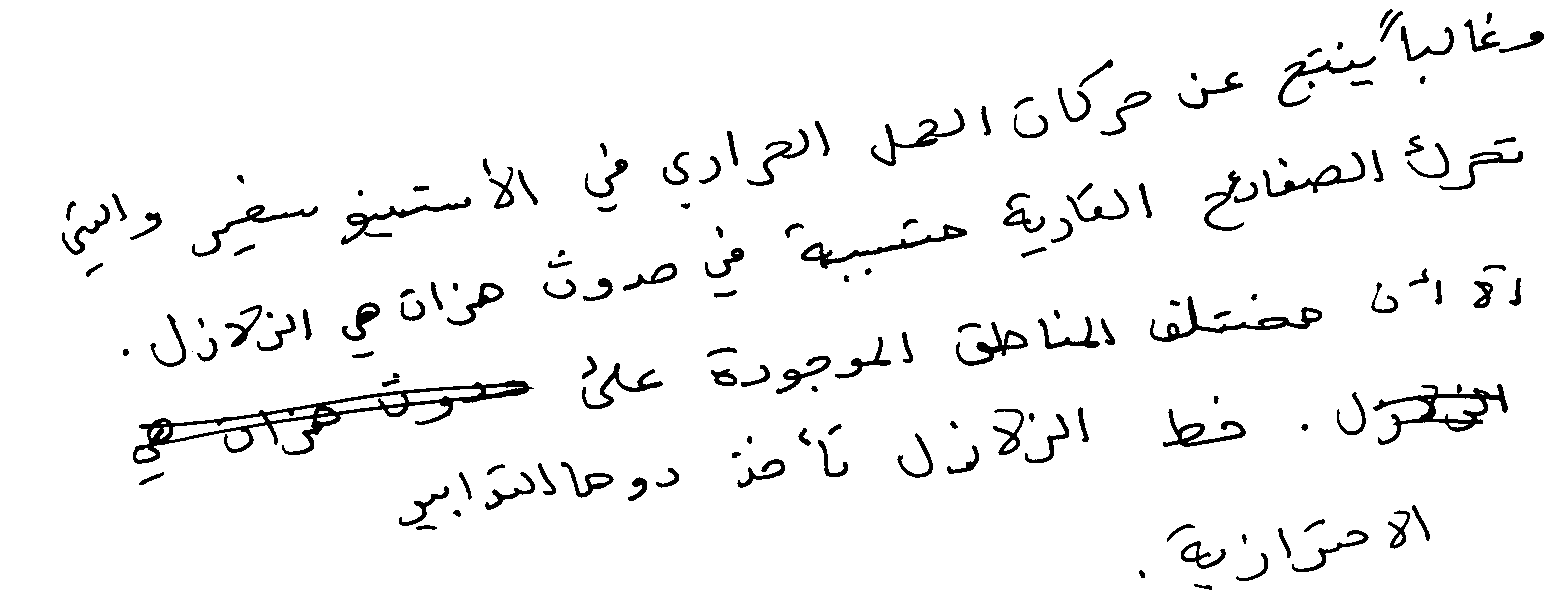 وغالباً ينتج عن حركات الحمل الحراري في الأستينو سفير والتي
تحرك الصفائح القارية متسببة في حدوث هزات هي الزلازل .
إلا أن مختلف المناطق الموجودة على حدوث هزات هي
الزلازل . خط الزلازل تأخذ دوما التدابير
الاحترازية .